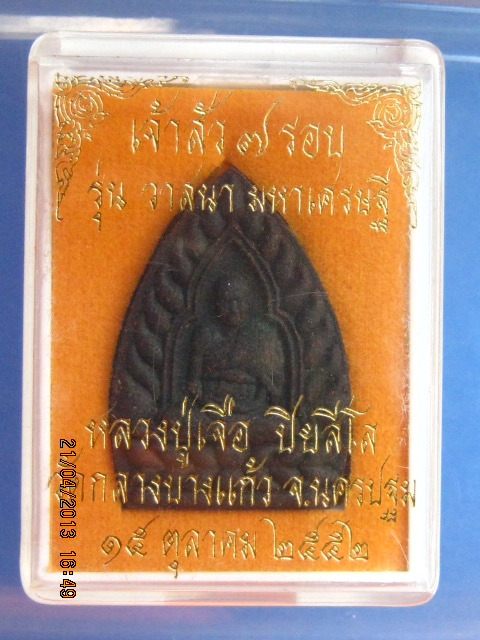 เจ้าสัว ๗ รอบ
รุ่น วาสนา มหาเศรษฐี
หลวงปู่เจือ ปิยสีโล
วัดกลางบางแก้ว จ.นครปฐม
๑๕ ตุลาคม ๒๕๕๒
21/04/2013 16:49